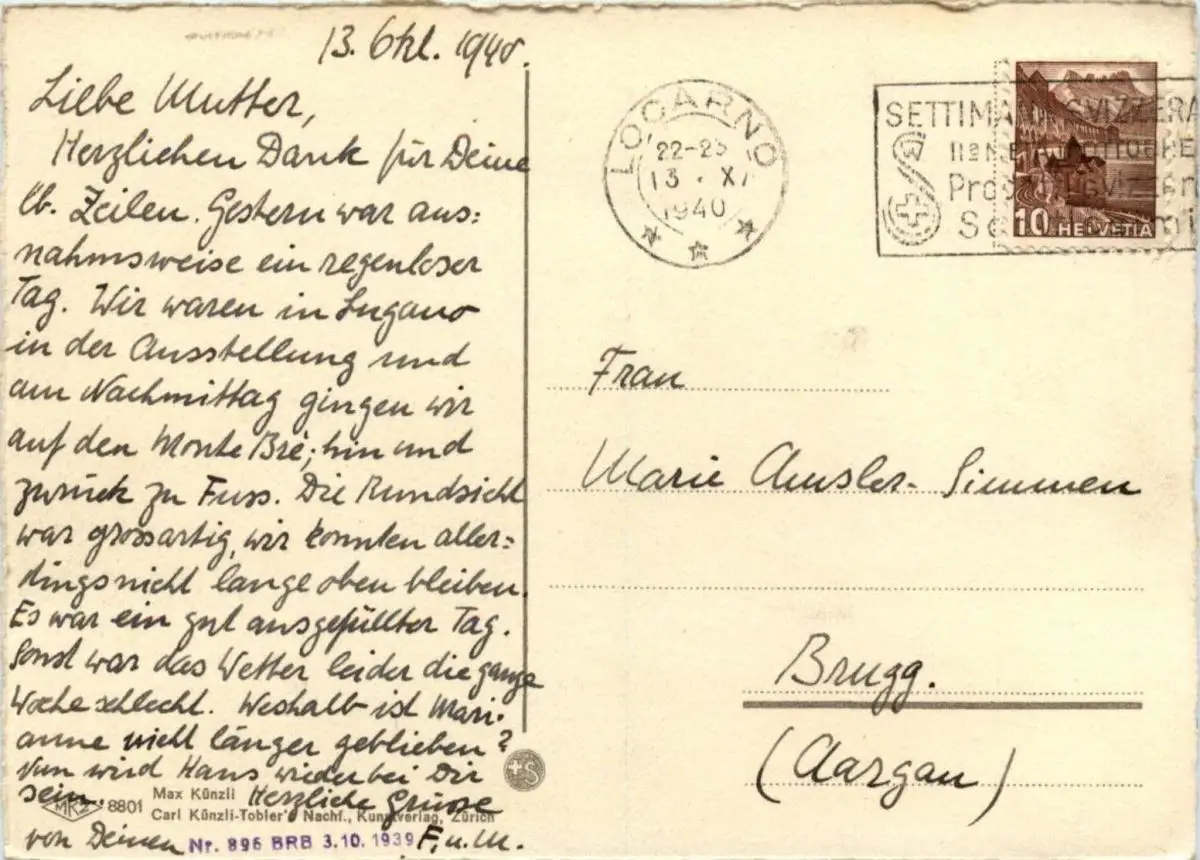 13. Okt. 1940.
Liebe Mutter,
Herzlichen Dank für Deine
lb. Zeilen. Gestern war aus=
nahmsweise ein regenloser
Tag. Wir waren in Lugano
in der Ausstellung und
am Nachmittag gingen wir
auf den Monte Brè; hin und
zurück zu Fuss. Die Rundsicht
war grossartig, wir konnten aller=
dings nicht lange oben bleiben.
Es war ein gut ausgefüllter Tag.
Sonst war das Wetter leider die ganze
Woche schlecht. Weshalb ist Mari-
anne nicht länger geblieben?
Nun wird Hans wieder bei Dir
sein. Herzliche Grüsse
von Deinen F. u. M.
MKZ 8801 Max Künzli
Carl Künzli-Tobler's Nachf., Kunstverlag, Zürich
Nr. 896 BRB 3.10.1939
LOCARNO
22-23
13. X
1940
SETTIMANA SVIZZERA
10 HELVETIA
Frau
Marie Amsler-Simmen
Brugg.
(Aargau)